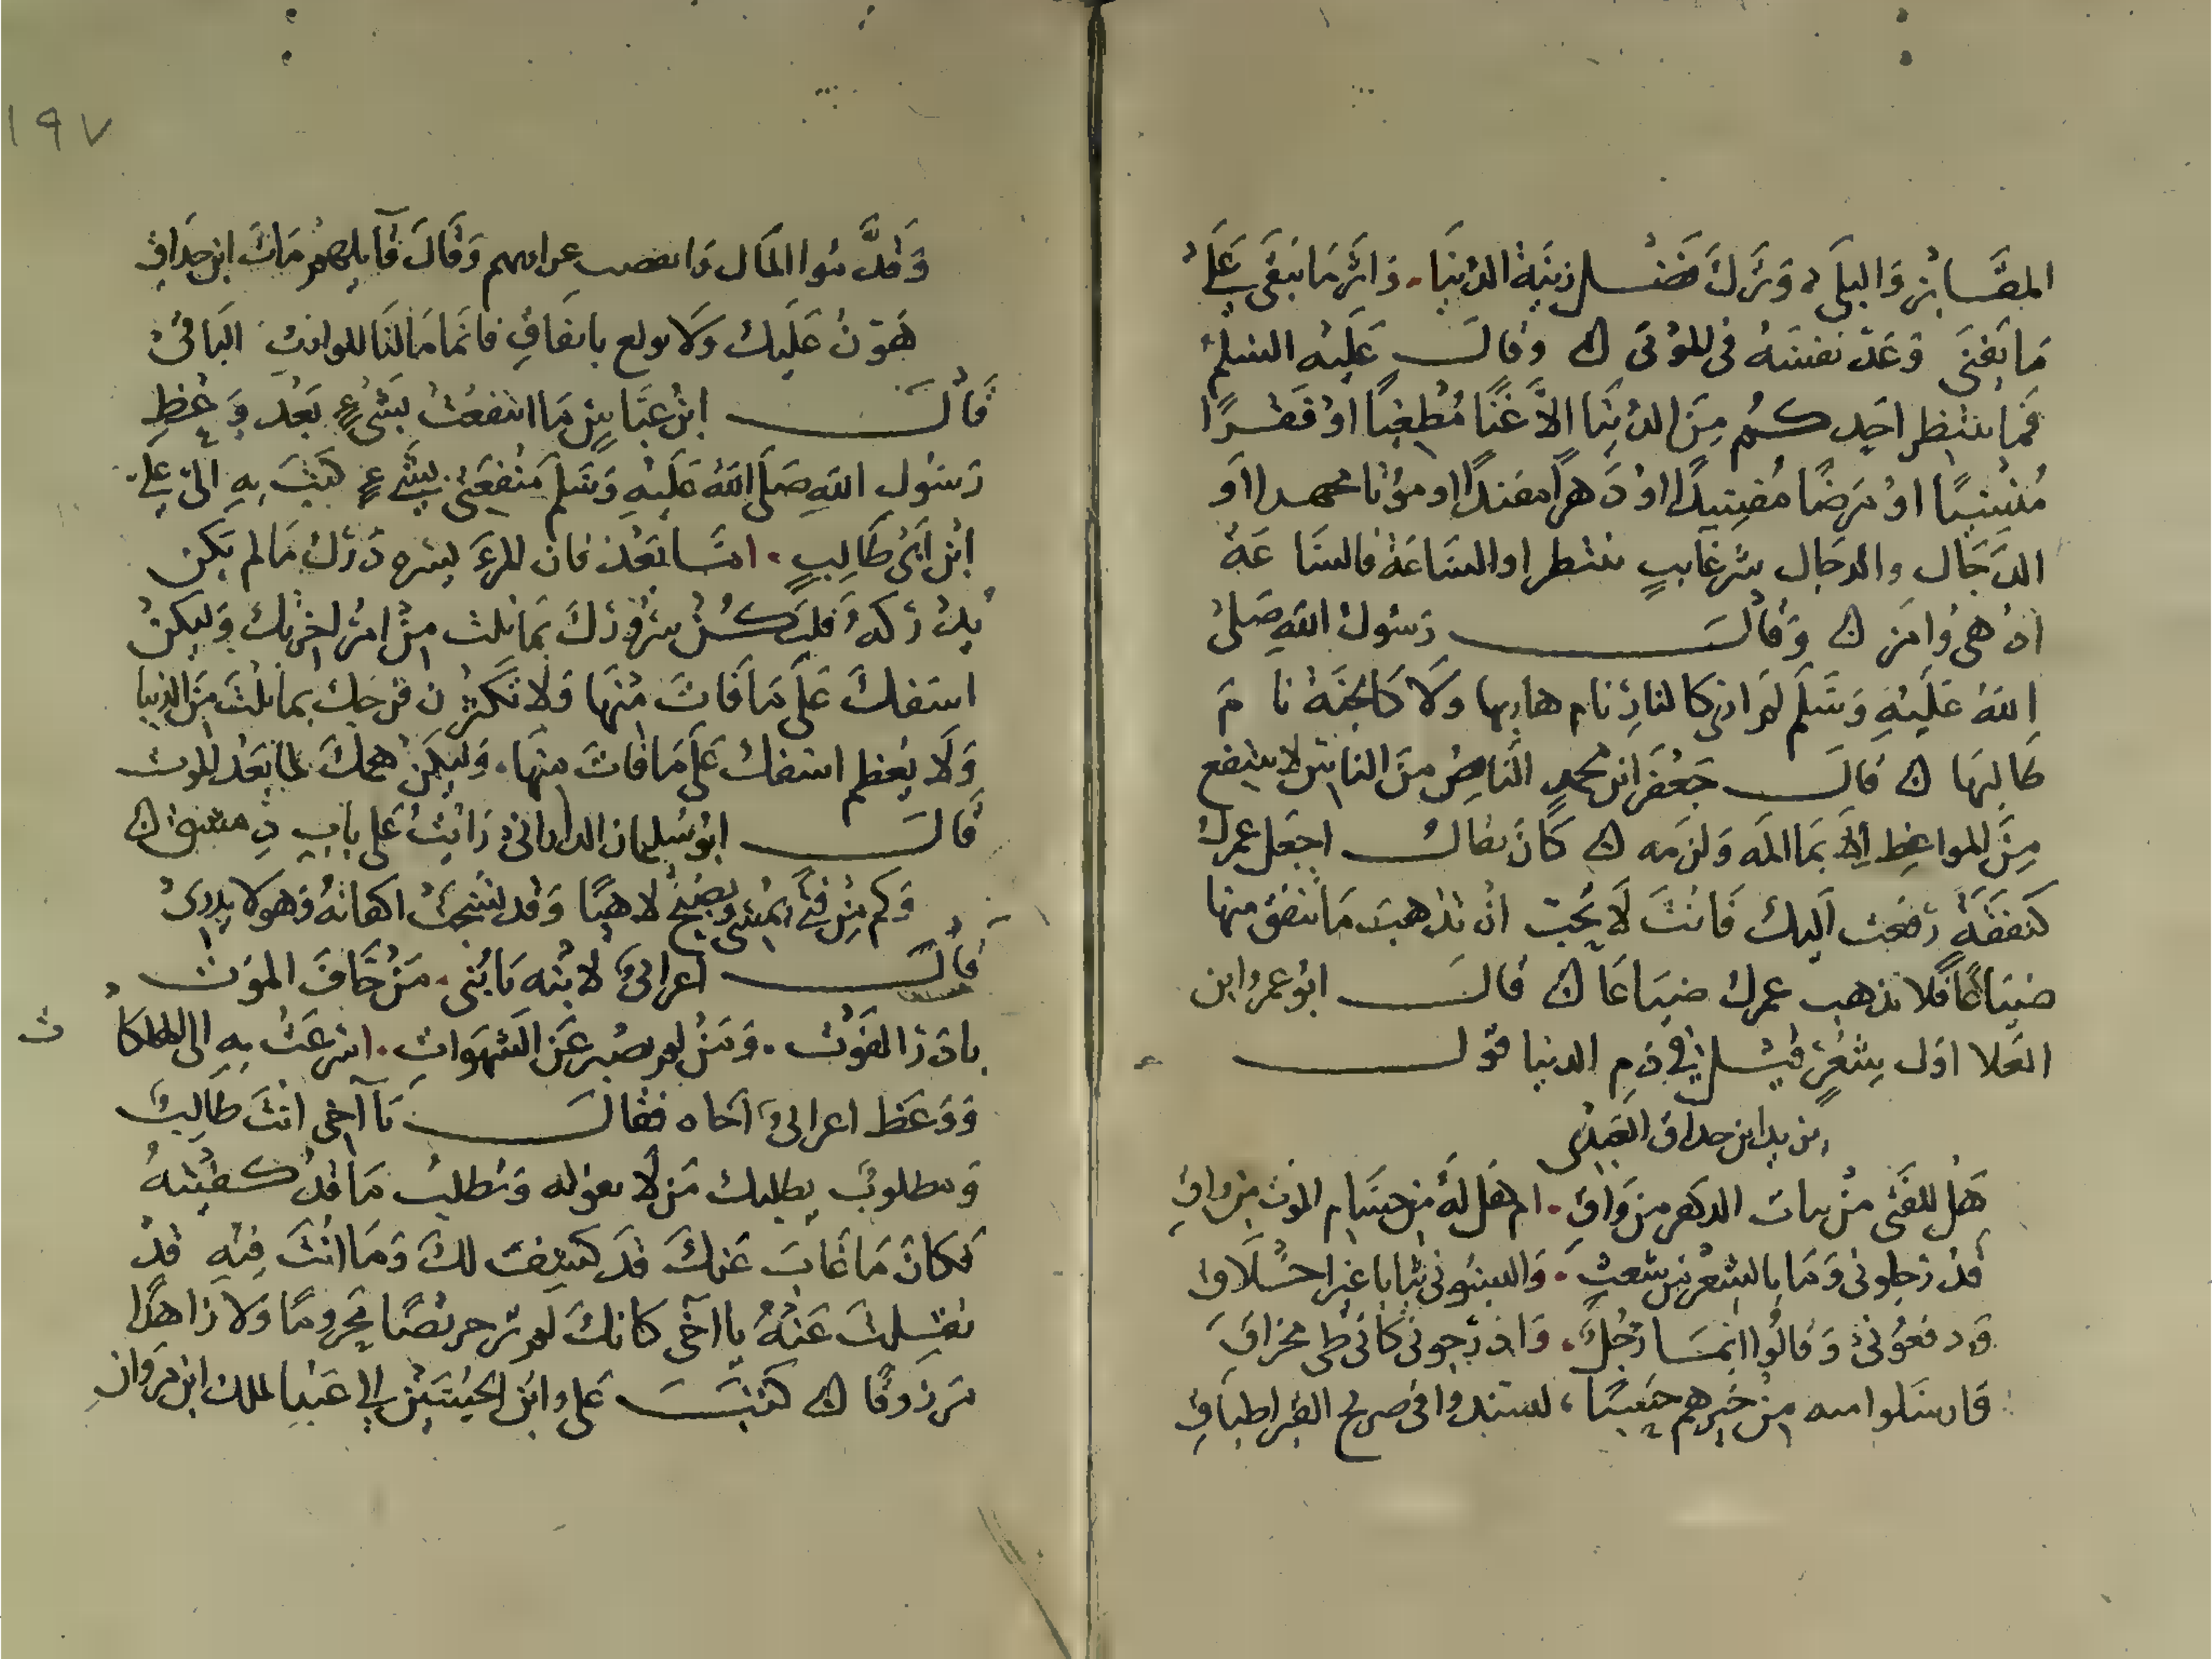 المقَابر وَالبلَى وَترَكَ فَضْل زينَة الدنيَا. وَاثر مَا يبقَى عَلَى
مَا يَفنَى وَعَدّ نفسَهُ فى الموْتَى ۞ وقالَ عَلَيه السلم
فَما ينتظر احَدكُم مِنَ الدنيَا الاَّ غنًا مُطْغيًا اوْ فَقْرًا
مُنْسيًا اوْ مَرَضًا مُفسِدًا اوْ دَهرًا مفندًا او موْتا مجهدا او
الدَجَال والدجال شر غايبٍ ينتظر او السَاعَة فالسَا عَة
ادْهى وَامَر ۞ وَقالَ رَسُول الله صَلى
الله عَلَيْهِ وَسَلَم لم ار كالنارِ نام هاربها وَلاَ كالجَنَة نا مَ
طَالبهَا ۞ قالَ جَعْفَر ابن محمدٍ النَاصِ منَ الناسِ لا ينتفع
مِنَ المواعِظ إلا بمَا المَه وَلزمه ۞ كَانَ يقال اجعَل عمركَ
كَنفقَةٍ دفعت اليك فَانتَ لَا تحُبّ انْ تذهبَ مَا تنفق منها
ضيَاعًا فَلا تذهب عمرك ضيَاعًا ۞ قالَ ابوْ عمرو ابن
العَلا اوَل شعْرٍ قيْل فى ذمِ الدنيا قول
يزيد ابن حداق العَبْدى
هَل للفَتى منْ بنات الدَهر من وَاقِ. ام هَل لَهُ من حمَام الموْت من راقِ
قدْ رَجلونى وَمَا بالشعْر من شعثٍ. وَالبسُونى ثيابا غير اخْلَاق
وَرفعُونى وَقالُوا ايمَا رَجُلٍ. وَادرَجونى كانى طى مخراق
وَارسَلوا فتيه منْ خيرهم حَسَبًا، ليسندوا فى ضريح القبر اطباقى
١٩٧
وَقَسَّموا المَال وَارفضت عوايدهم وَقَالَ قآيلهم مَاتَ ابن حدَاقِ
هَوِّنْ عَلَيك وَلا تولع باشفَاقٍ فانمَا مَالنَا للوارث البَاقىْ
قَالَ ابْن عبَّاسٍ مَا انتفعْتُ بشىْءٍ بَعْد وَعْظِ
رَسُولِ اللهِ صَلَى اللهُ عَلَيْهِ وَسَلَم مَنْفعَتى بشَىءٍ كتَبَ بِهِ الىّ عَلىّ
ابْن ابَى طَالِبٍ. امَّا بَعْد فان المرءَ يسره دَرْك مَا لم يكن
ليفوته
يدْركهُ فليَكُنْ سرُورُكَ بمَا نلت مِنْ امْر اخرتكَ وَليكنْ
اسَفكَ عَلَى مَا فَاتَ مْنهَا وَلا تكْثرن فرَحكَ بمَا نلْتَ مَن الدنيا
وَلَا يعْظم اسَفك عَلَى مَا فاتَ منهَا. وَليكَنْ همكَ لما بَعْد الموت
قَالَ ابوْ سُليمان الدارانىْ رَايتُ عَلى بابِ دِمشق ۞
وَكم مِنْ فتًى يمْسى وَيصْبحُ لاهيًا وَقد نُسجَتْ اكفانهُ وَهو لا يدرىْ
قَالَ اعرابىٌ لابْنه يَا بُنى. مَنْ خَافَ الموَت
بادَرَ الفَوْت. وَمَنْ لم يصْبر عَن الشهَوات. اسْرعَتْ بهِ الى الهلكَا ت
وَوَعَظ اعرابىٌ اَخاه فقَالَ يَا آخى انتَ طَالبٌ
وَمطلوبٌ يطلبك مَن لَا تفوته وَتطلبُ مَا قدْ كُفيْتهُ
فكانَ مَا غَابَ عَنكَ قدَ كشِفَ لكَ وَمَا انْتَ فيْهِ قدْ
نقِلتَ عَنْهُ يا اَخى كانكَ لم تر حريْصًا مَحرومًا وَلا زَاهدًا
مَرزوقًا ۞ كَتَبَ عَلى ابْن الحسَيْن الى عَبْد الملك ابن مَروَان